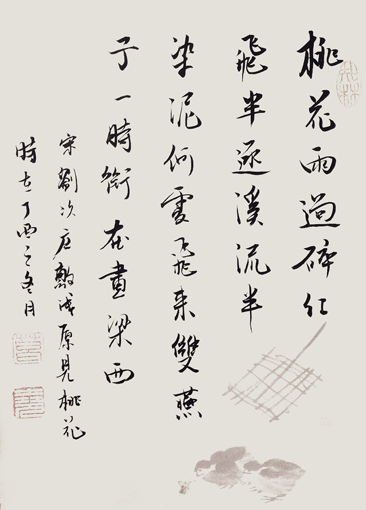 桃花雨過碎红
飛半逐溪流半
染泥何處飛来雙燕
子一時銜在畫梁西
宋劉次庄敷浅原見桃花
時在丁酉之冬月